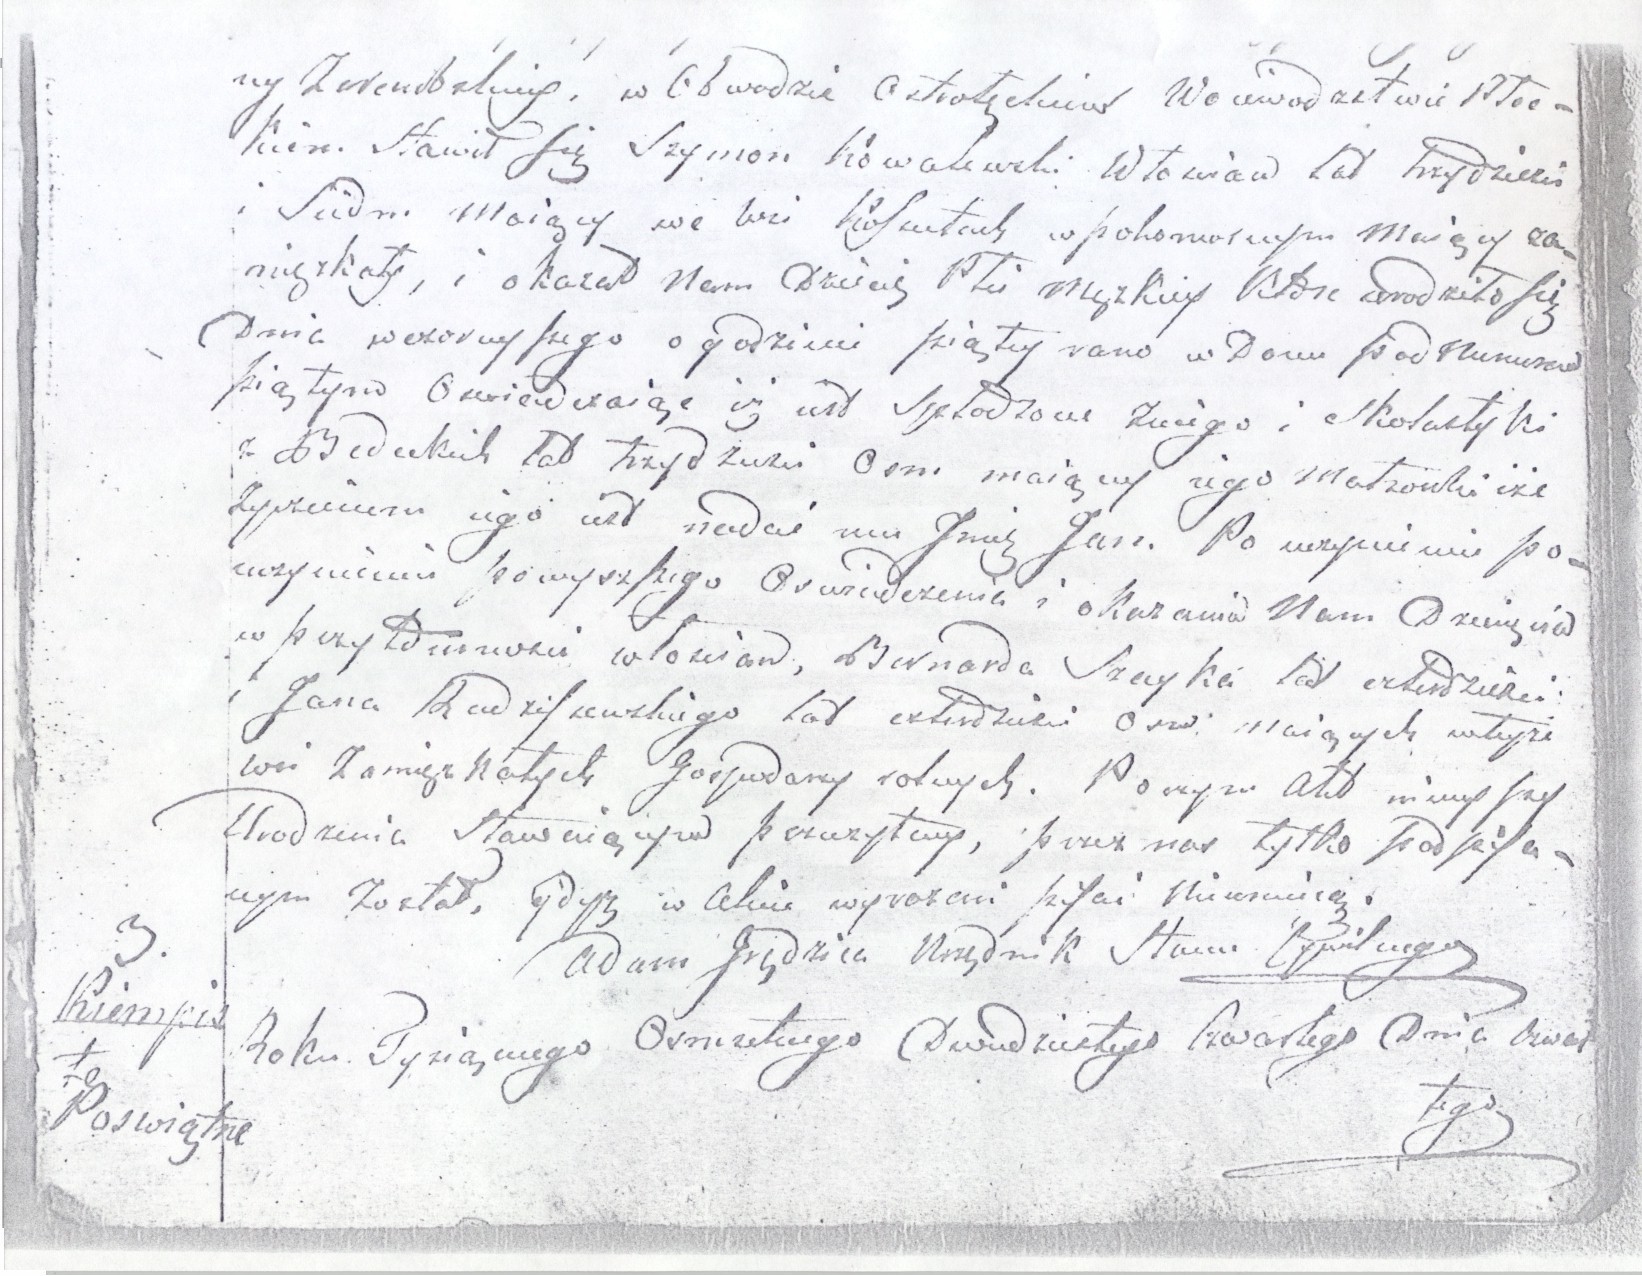 ny Zarembskiey, w Obwodzie Ostrołęckim Woiewodztwie Płoc-
kiem Stawił się Szymon Kowalewski Włościan lat trzydzieści
i Siedm maiący we wsi w pokomornym maiący za-
mięszkały, i okazał Nam Dziecię Płci męzkiey które urodziło się
Dnia wczorayszego o godzinie piątey rano w Domu pod Numerem
piątym Oswiadczaiąc iż iest Spłodzone z niego i Skolastyki
z Bedeckich lat trzydzieści Osm maiącey iego Małżonki iże
życzeniem iego iest nadać mu Imię Jan. Po uczynieniu po-
uczynieniu powyższego Oswiadczenia i okazaniu Nam Dziecięcia
w przytomności włościan, Bernarda lat czterdzieści
i Jana Radziszewskiego lat czterdzieści Osm maiących w teyże
wsi Zamięszkałych Gospodarzy rolnych. Poczym Akt ninieyszy
Urodzenia Stawaiącym przeczytany, przez nas tylko podpisa-
nym został, gdyż w Akcie wyrażeni pisać nieumieią.
Adam Grędzica Urzędnik Stanu Cywilnego
3.
Kiempis
te
Poswiętne
Roku Tysiącznego Osmsetnego Dwudziestego Czwartego Dnia Czwar
tego